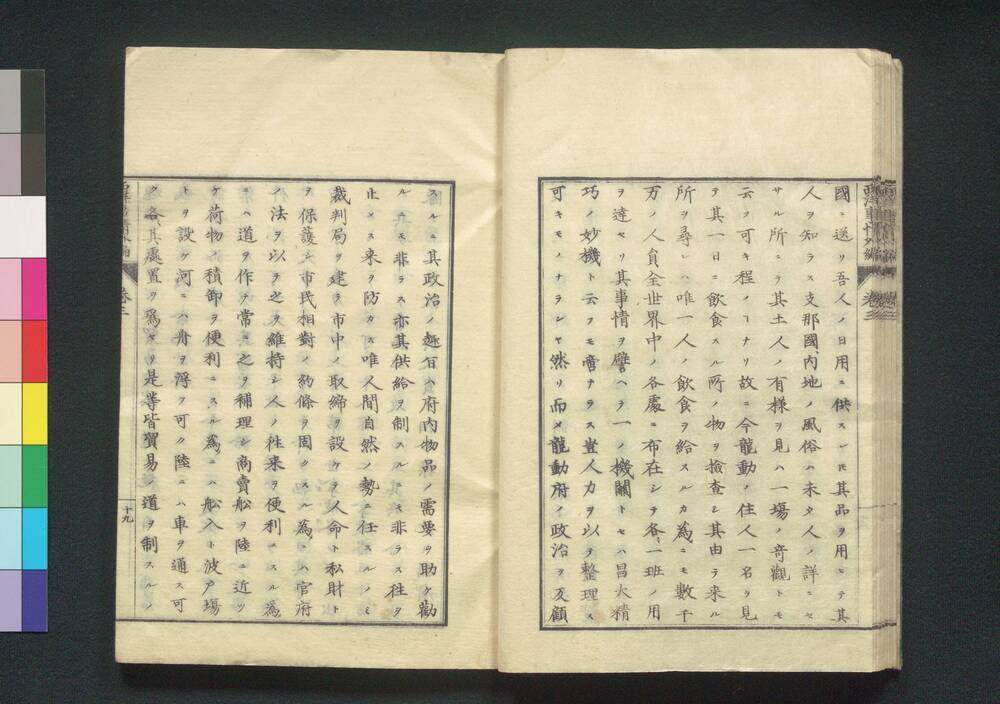 西洋事情外編 卷三
國ニ送リ吾人ノ日用ニ供スレ𪜈其品ヲ用ヒテ其
人ヲ知ラス支那國内地ノ風俗ハ未タ人ノ詳ニセ
サル所ニテ其土人ノ有様ヲ見ハ一場ノ奇觀トモ
云フ可キ程ノヿナリ故ニ今龍動ノ住人一名ヲ見
テ其一日ニ飲食スル所ノ物ヲ撿査シ其由テ来ル
所ヲ尋レハ唯一人ノ飲食ヲ給スルカ為ニモ數千
万ノ人員全世界中ノ各處ニ布在シテ各一班ノ用
ヲ達セリ其事情ヲ譬ヘテ一ノ機關トセハ昌大精
巧ノ妙機ト云フモ啻ナラス豈人力ヲ以テ整理ス
可キモノナランヤ然リ而メ龍動府ノ政治ヲ反顧
スルニ其政治ノ趣旨ハ府内物品ノ需要ヲ助ケ勸
ルニモ非ラス亦其供給ヲ制スルニモ非ラス往ヲ
止メス来ヲ防カス唯人間自然ノ勢ニ任スルノミ
裁判局ヲ建テ市中ノ取締ヲ設ケテ人命ト私財ト
ヲ保護シ市民相對ノ約條ヲ固クスル為ニハ官府
ノ法ヲ以テ之ヲ維持シ人ノ往来ヲ便利ニスル為
ニハ道ヲ作テ常ニ之ヲ補理シ商賣舩ヲ陸ニ近ツ
ケ荷物ノ積卸ヲ便利ニスル為ニハ舩入ト波戸場
トヲ設ケ河ニハ舟ヲ浮フ可ク陸ニハ車ヲ通ス可
ク各其處置ヲ為セリ是等皆貿易ノ道ヲ制スルノ
卷三
十九